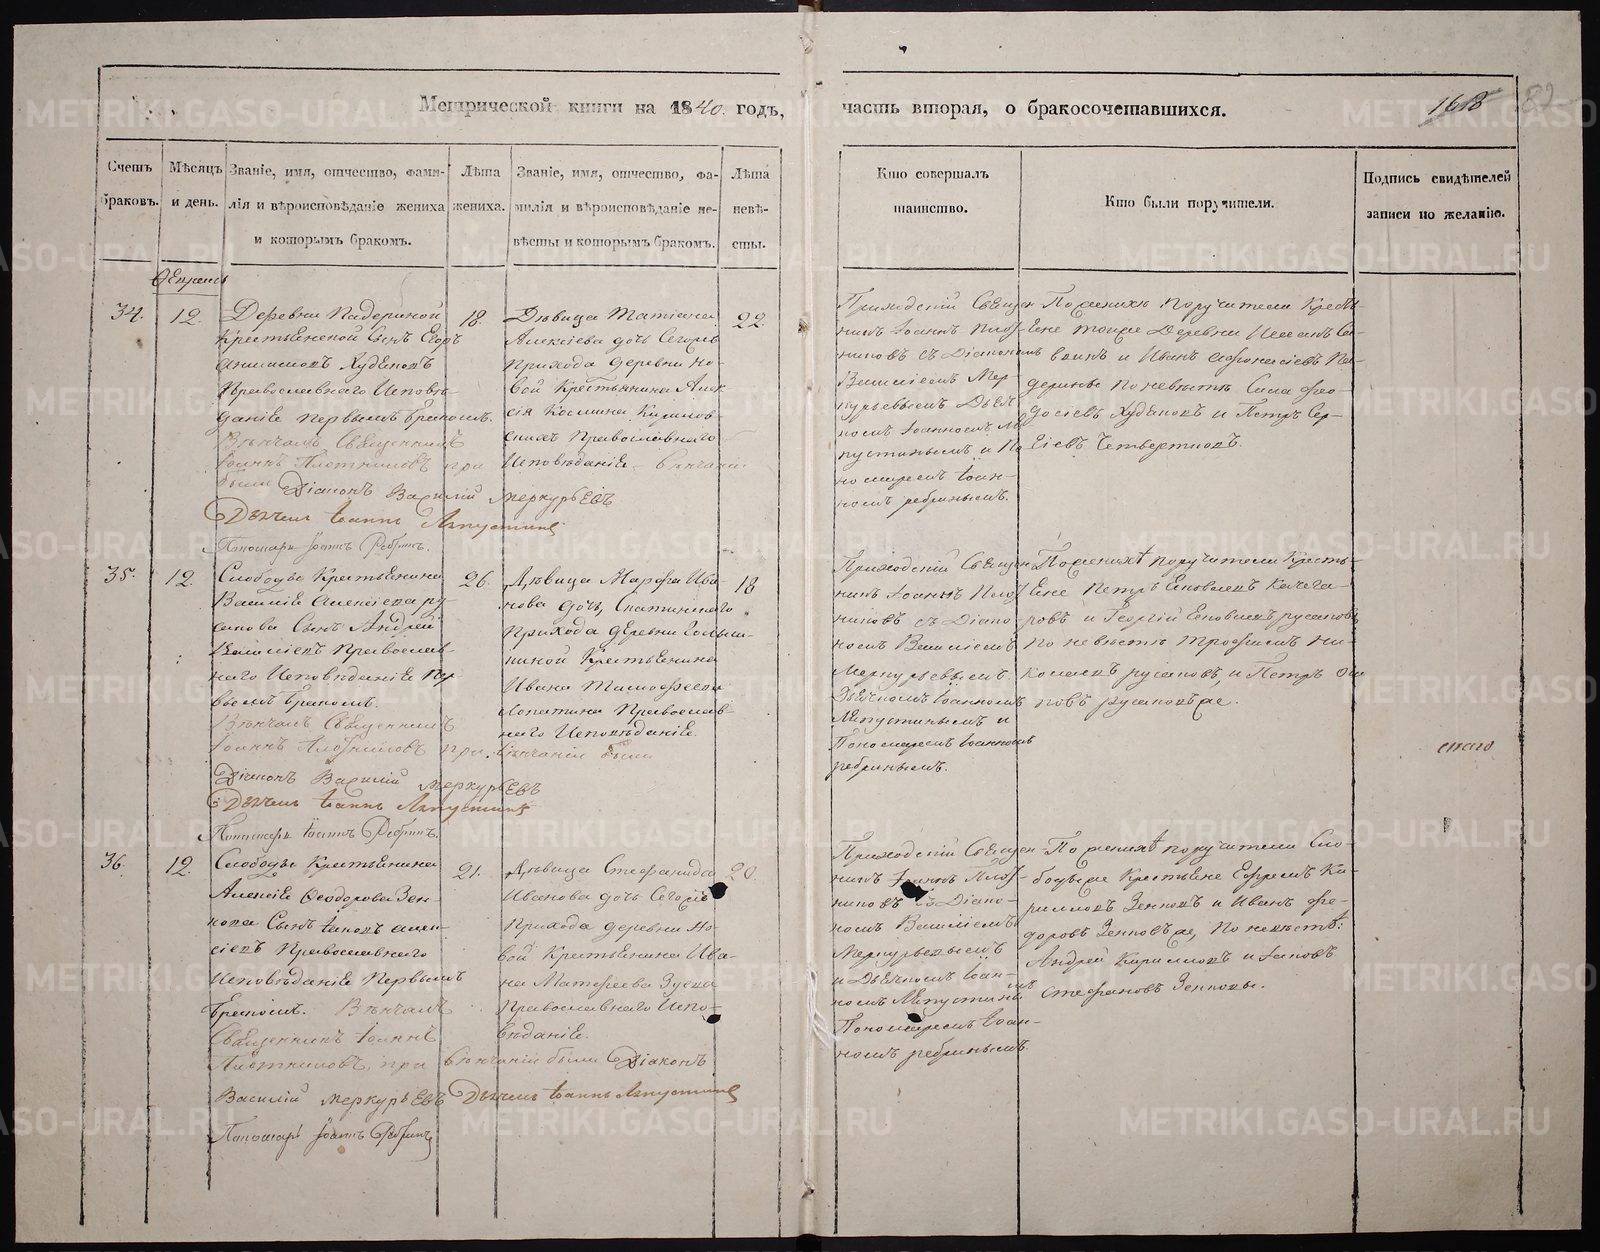 Метрической книги на 1840 годъ,
часть вторая, о бракосочетавшихся.
168
82
Счетъ браковъ.
Мѣсяцъ и день.
Званіе, имя, отчество, фами-
лія и вѣроисповѣданіе жениха
и которымъ бракомъ.
Лѣта
жениха.
Званіе, имя, отчество, фа-
милія и вѣроисповѣданіе не-
вѣсты и которымъ бракомъ.
Лѣта
невѣ-
сты.
Кто совершалъ
таинство.
Кто были поручители.
Подпись свидѣтелей
записи по желанію.
Февраль
34.
12.
Деревни Падериной
Крестьенской Сынъ Егоръ
Худяковъ
Православнаго Исповѣ-
даніе первымъ бракомъ.
Вѣнчалъ Священникъ
Іоаннъ Плотниковъ при
были Діаконъ Василій Меркурьевъ
Дьячекъ Іоаннъ Лапустинъ
Пономарь Іоаннъ Ребринъ.
18.
Дѣвица Татіана
Алексіева дочь Сегоже
прихода деревни Но-
вой Крестьянина Алек-
сія Космина
Православнаго
Исповѣданіе вѣнчаніи
22.
Приходскій Священ-
никъ Іоаннъ Плот-
никовъ съ Діакономъ
Василіемъ Мер-
курьевымъ Дьяч-
комъ Іоанномъ Ла-
пустинымъ и По-
номаремъ Іоан-
номъ Ребринымъ.
По женихѣ поручители Кресть-
ене тоиже Деревни
и Иванъ Афонасіевъ Па-
дерины по невѣстѣ Сила Фео-
досіевъ Худяковъ и Петръ Сер-
гіевъ Четвертновъ.
35.
12.
Слободы Крестьенина
Василіе Алексіева Ру-
санова Сынъ Андрей
Василіевъ Православ-
наго Исповѣданіе Пер-
вымъ бракомъ.
Вѣнчалъ Священникъ
Іоаннъ Плотниковъ при вѣнчаніи были
Діаконъ Василій Меркурьевъ
Дьячекъ Іоаннъ Лапустинъ
Пономарь Іоаннъ Ребринъ.
26.
Дѣвица Марфа Ива-
нова дочь,
прихода деревни
Крестьенина
Ивана Тимофеева
Лопатина Православ-
наго Исповѣданіе.
18.
Приходскій Священ-
никъ Іоаннъ Плот-
никовъ съ Діако-
номъ Василіемъ
Меркурьевымъ
Дьячкомъ Іоанномъ
Лапустинымъ и
Пономаремъ Іоанномъ
Ребринымъ.
По женихѣ поручители Кресть-
ене Петръ Еновлевъ Качега-
ровъ и Георгій Еновлевъ Русановъ
по невѣстѣ Трофимъ Ни-
колаевъ Русановъ, и Петръ
36.
12.
Слободы Крестьенина
Алексіе Феодорова Зен-
кова Сынъ Іаковъ Алек-
сіевъ Православнаго
Исповѣданіе Первымъ
бракомъ. Вѣнчалъ
Священникъ Іоаннъ
Плотниковъ, при вѣнчаніи были Діаконъ
Василій Меркурьевъ Дьячекъ Іоаннъ Лапустинъ
Пономарь Іоаннъ Ребринъ
21.
Дѣвица Стефанида
Иванова дочь Сегоже
Прихода деревни Но-
вой Крестьенина Ива-
на Матфеева Зуева
Православнаго Испо-
вѣданіе.
20.
Приходскій Священ-
никъ Іоаннъ Плот-
никовъ съ Діако-
номъ Василіемъ
Меркурьевымъ
и Дьячкомъ Іоан-
номъ Лапустинымъ
Пономаремъ Іоан-
номъ Ребринымъ.
По женихѣ поручители Сло-
боцкие Крестьене Ефремъ Ки-
рилловъ Зенковъ и Иванъ Фе-
доровъ Зенковъже, По невѣстѣ:
Андрей Кирилловъ и Іаковъ
Стефановъ Зенковы.